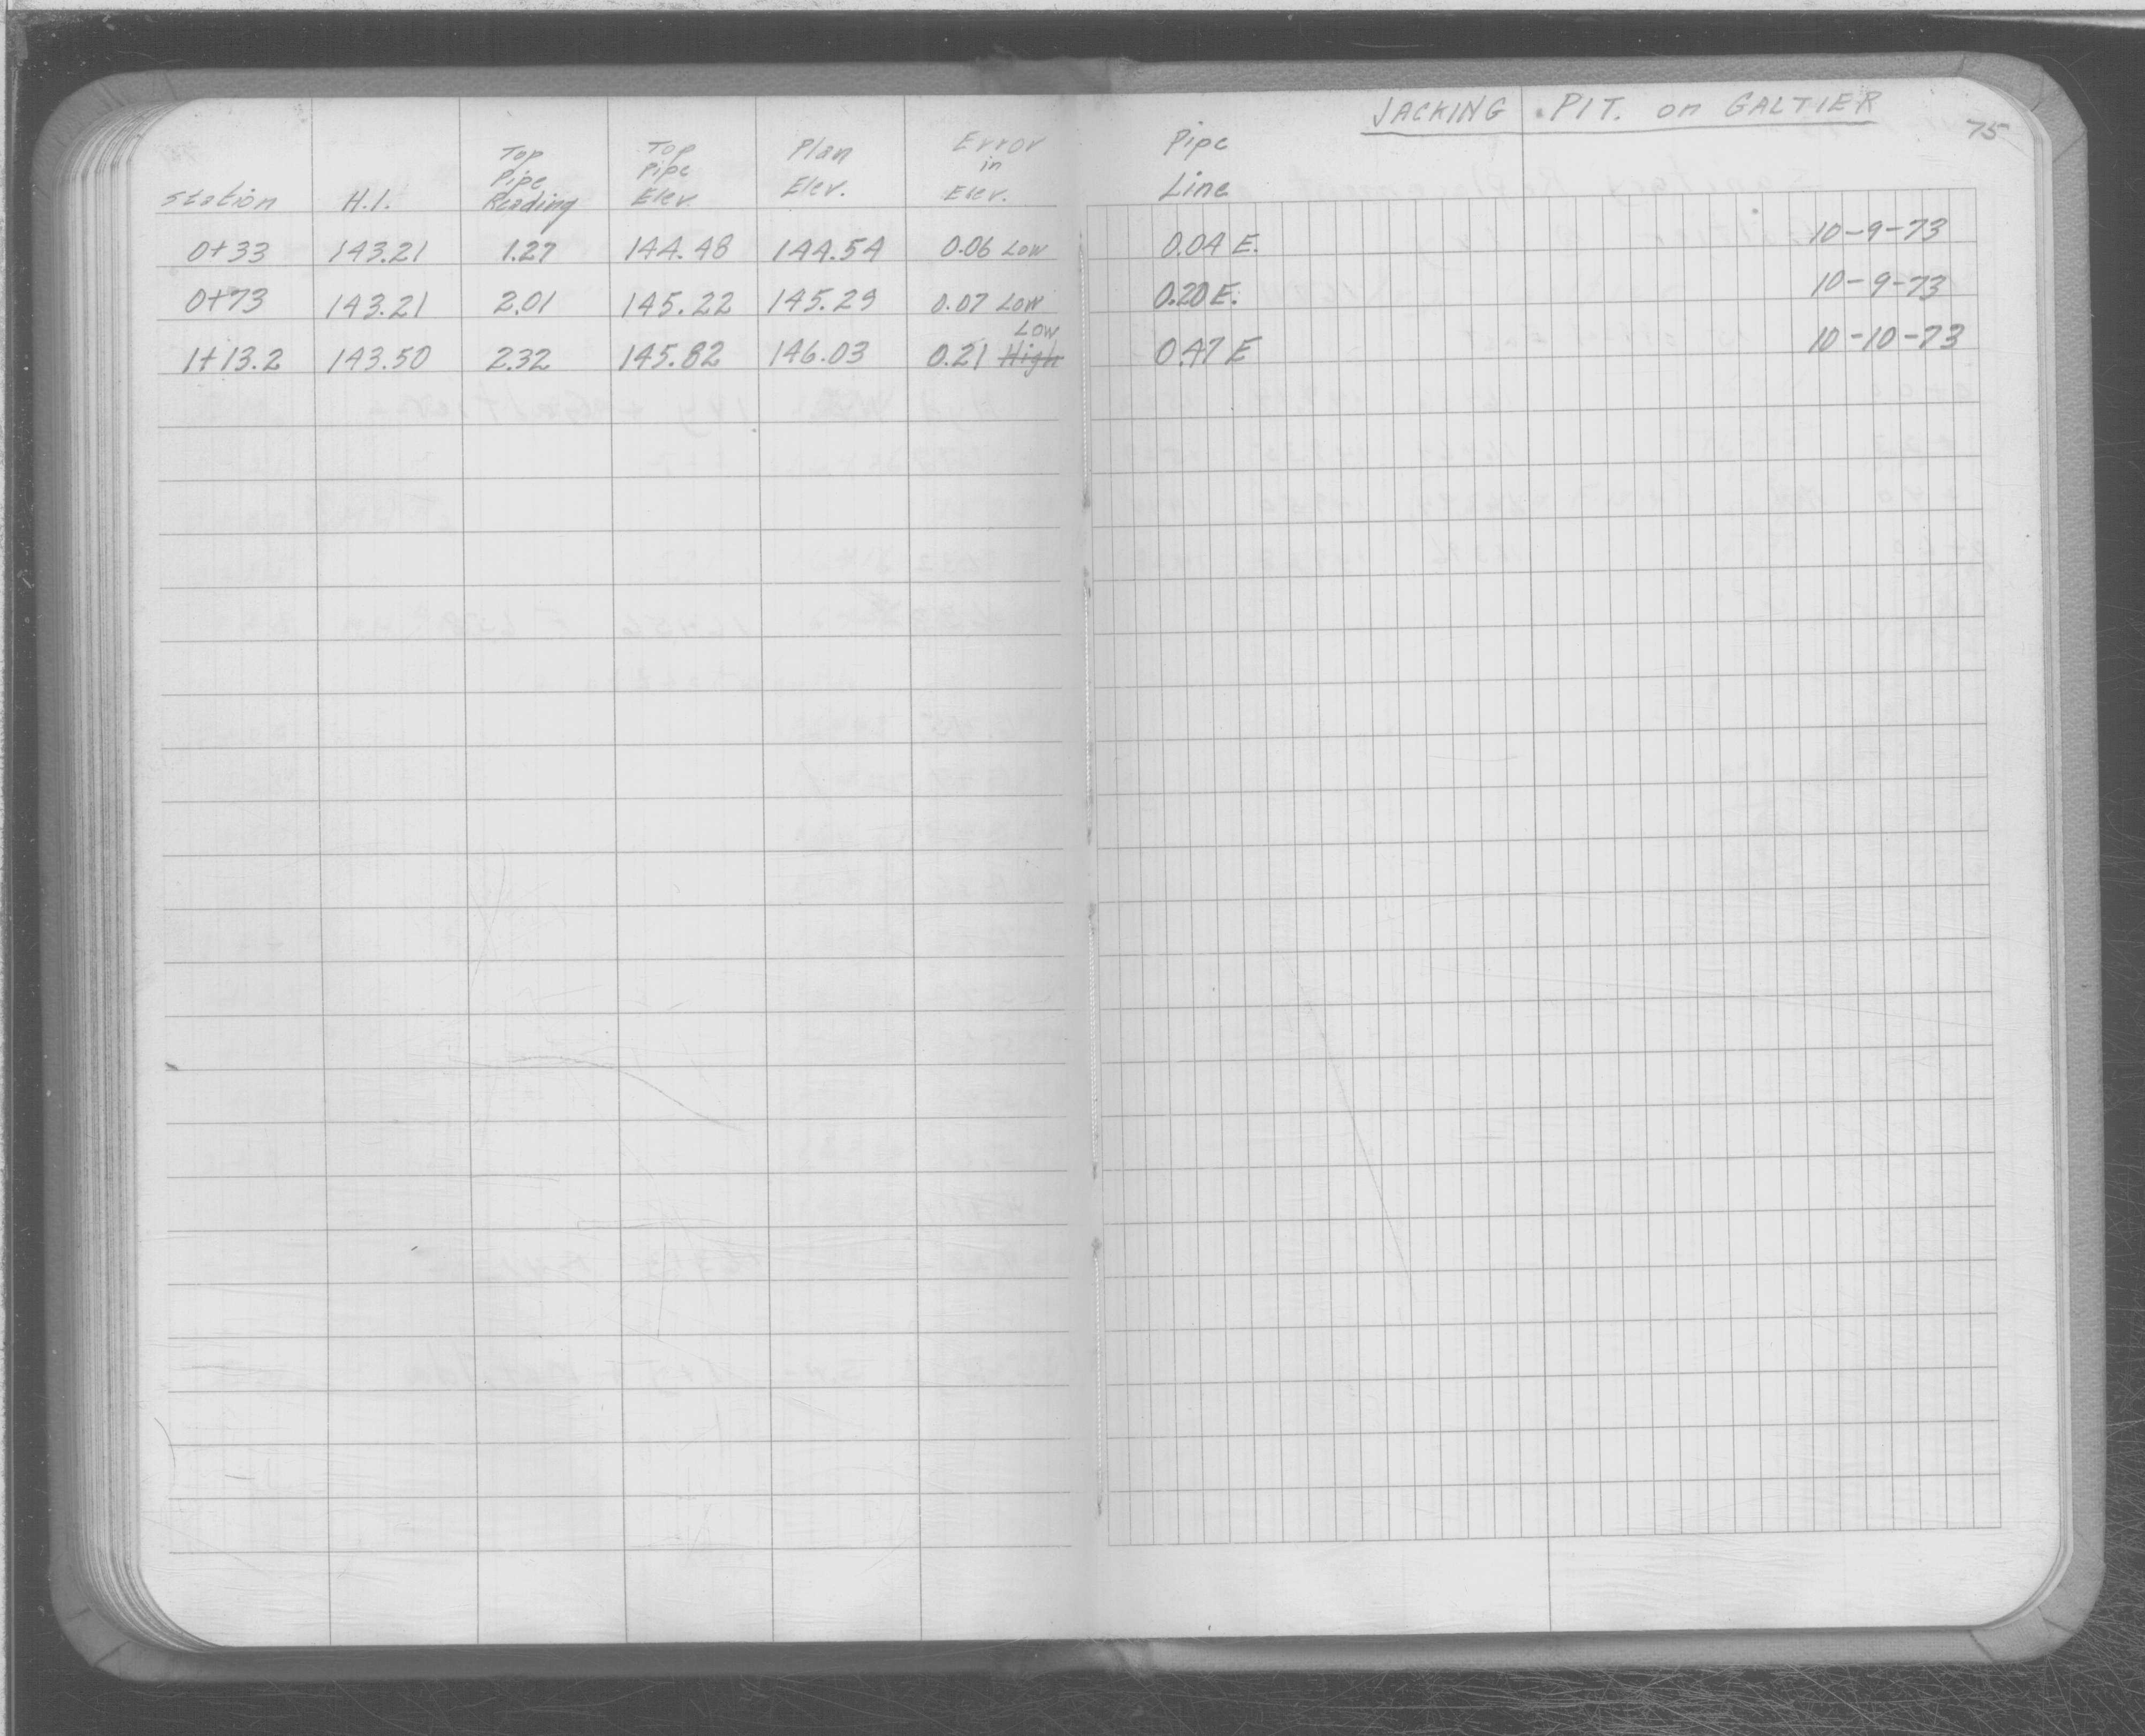 JACKING PIT. on GALTIER
75
Station H.I. Top Pipe Reading Top Pipe Elev. Plan Elev. Error in Elev. Pipe Line
0+33 143.21 1.27 144.48 144.54 0.06 Low 0.04 E. 10-9-73
0+73 143.21 2.01 145.22 145.29 0.07 Low 0.20 E. 10-9-73
Low
1+13.2 143.50 2.32 145.82 146.03 0.21 High 0.47 E 10-10-73